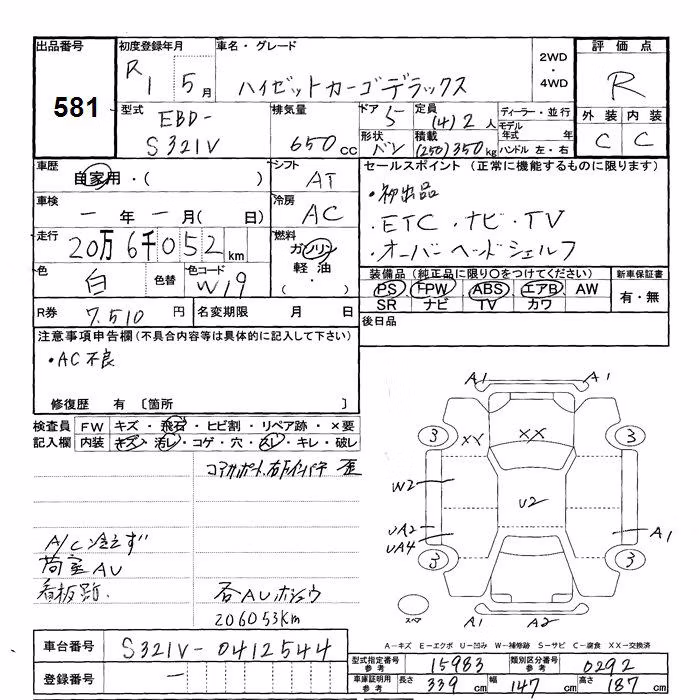 出品番号
581
初度登録年月
R1 5月
車名・グレード
ハイゼットカーゴデラックス
2WD
・
4WD
評価点
R
外装 内装
C C
型式
EBD-
S321V
排気量
650cc
ドア
5
定員
(4) 2人
形状
バン
積載
(250)350kg
ディーラー・並行
モデル
年式 年
ハンドル 左・右
車歴
自家用・( )
シフト
AT
車検
ー年ー月( 日)
冷房
AC
走行
20万6千052km
燃料
ガソリン
軽油
・
( )
色
白
色替
色コード
W19
R券
7,510円
名変期限 月 日
セールスポイント(正常に機能するものに限ります)
・初出品
・ETC・ナビ・TV
・オーバーヘッドシェルフ
装備品(純正品に限り○をつけてください)
PS FPW ABS エアB AW
SR ナビ TV カワ
新車保証書
有・無
後日品
注意事項申告欄(不具合内容等は具体的に記入して下さい)
・AC不良
修復歴 有 〔箇所 〕
検査員
記入欄
FW キズ・飛石・ヒビ割・リペア跡・×要
内装 キズ・汚レ・コゲ・穴・スレ・キレ・破レ
コアサポート、右下インパネ 歪
A/C冷えず
荷室AU
看板跡.
206053Km
車台番号
S321V-0412544
登録番号
ー
A1 A1
3 3
XX XX
W2
U2
UA2
UA4
A1
3 3
スペア
A1 A2
A-キズ E-エクボ U-凹み W-補修跡 S-サビ C-腐食 XX-交換済
型式指定番号
参考
15983
類別区分番号
参考
0292
車庫証明用
参考
長さ 339cm 幅 147cm 高さ 187cm